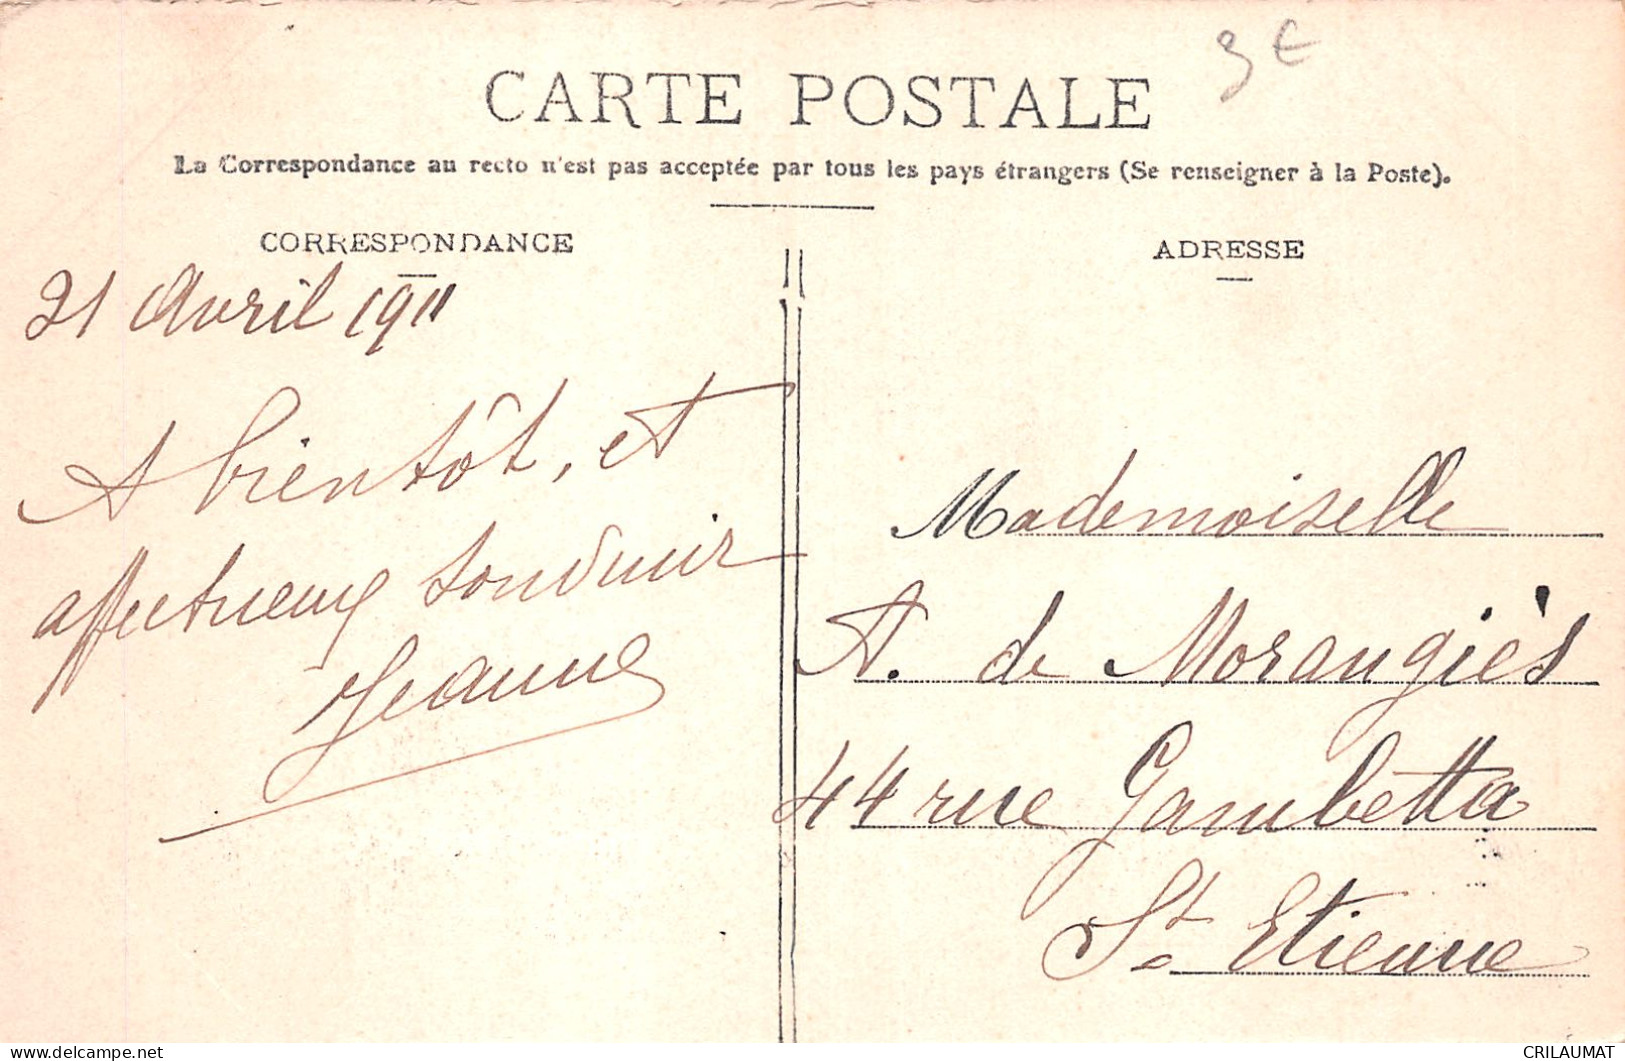 3 €
CARTE POSTALE
La Correspondance au recto n'est pas acceptée par tous les pays étrangers (Se renseigner à la Poste).
CORRESPONDANCE
21 Avril 1911
A bientôt, et
affectueux souvenir
Jeanne
ADRESSE
Mademoiselle
A. de Morangiès
44 rue Gambetta
St. Etienne
delcampe.net
CRILAUMAT